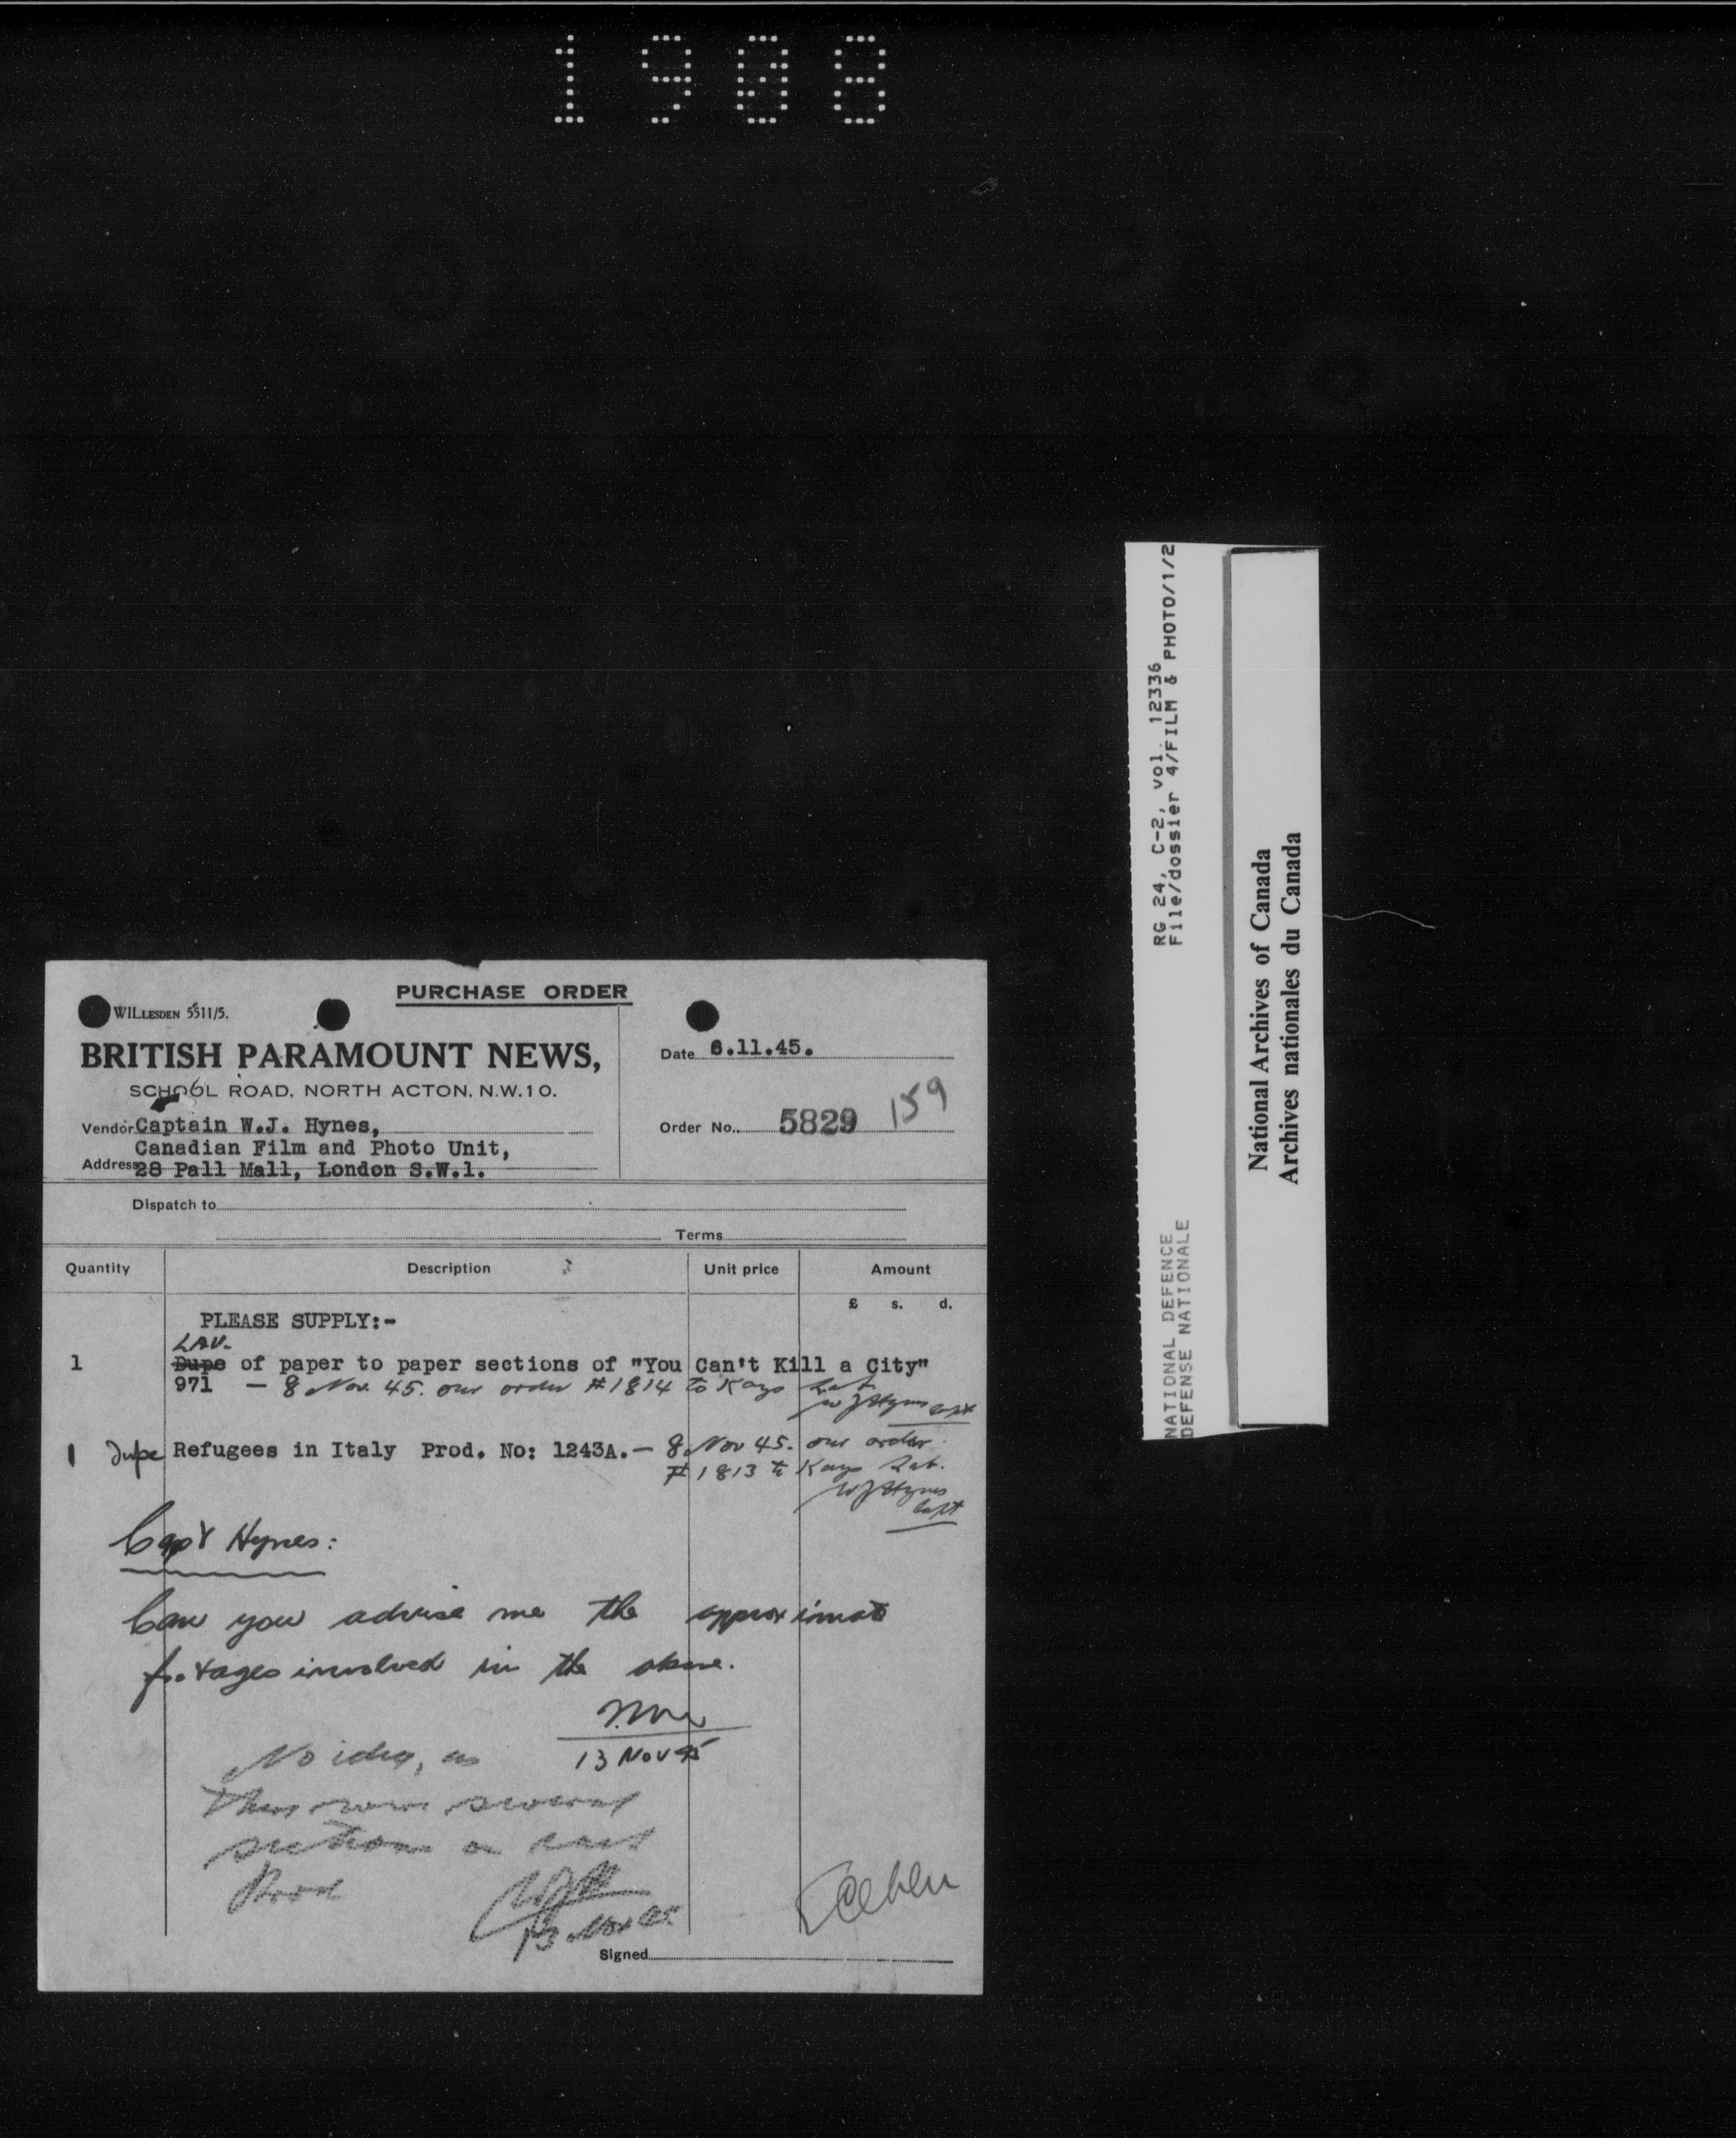 1908
PURCHASE ORDER
WILLESDEN 5511/5.
BRITISH PARAMOUNT NEWS,
SCHOOL ROAD, NORTH ACTON, N.W.10.
Date 6.11.45.
Order No. 5829 159
Vendor Captain W.J. Hynes,
Canadian Film and Photo Unit,
Address 28 Pall Mall, London S.W.1.
Dispatch to
Terms
Quantity Description Unit price Amount
£ s. d.
PLEASE SUPPLY:-
LAV.
1 Dupe of paper to paper sections of "You Can't Kill a City"
971 — 8 Nov. 45. our order #1814 to Kays Lab.
W J Hynes Capt
1 Dupe Refugees in Italy Prod. No: 1243A. — 8 Nov 45. our order
#1813 to Kays Lab.
W J Hynes
Capt
Capt Hynes:
Can you advise me the approximate
footages involved in the above.
13 Nov 45
No idea, as
there were several
sections on each
Prod
WJH
13 Nov 45
Signed
RG 24, C-2, vol. 12336
File/dossier 4/FILM & PHOTO/1/2
NATIONAL DEFENCE
DEFENSE NATIONALE
National Archives of Canada
Archives nationales du Canada